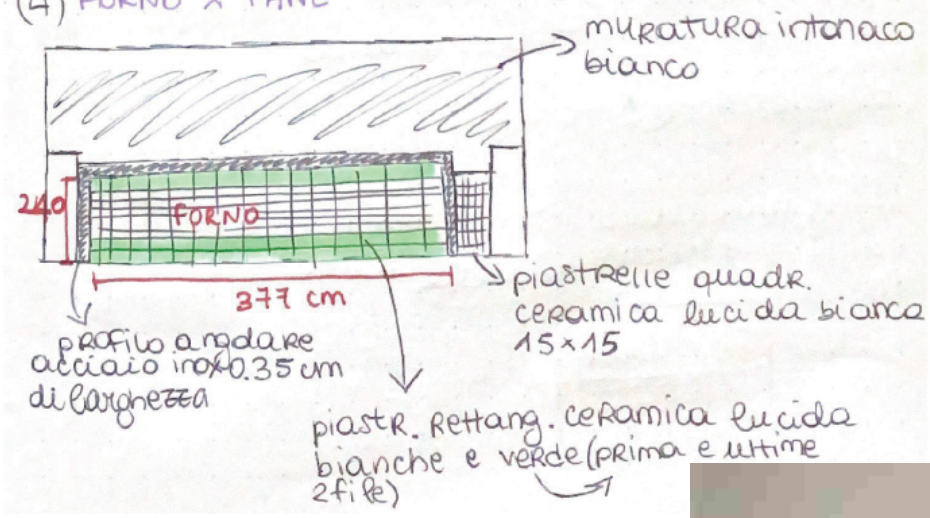 (4) FORNO X PANE
muratura intonaco
bianco
240
FORNO
377 cm
piastrelle quadr.
ceramica lucida bianca
15x15
profilo angolare
acciaio inox 0.35 cm
di larghezza
piastr. rettang. ceramica lucida
bianche e verde (prima e ultime
2 file)